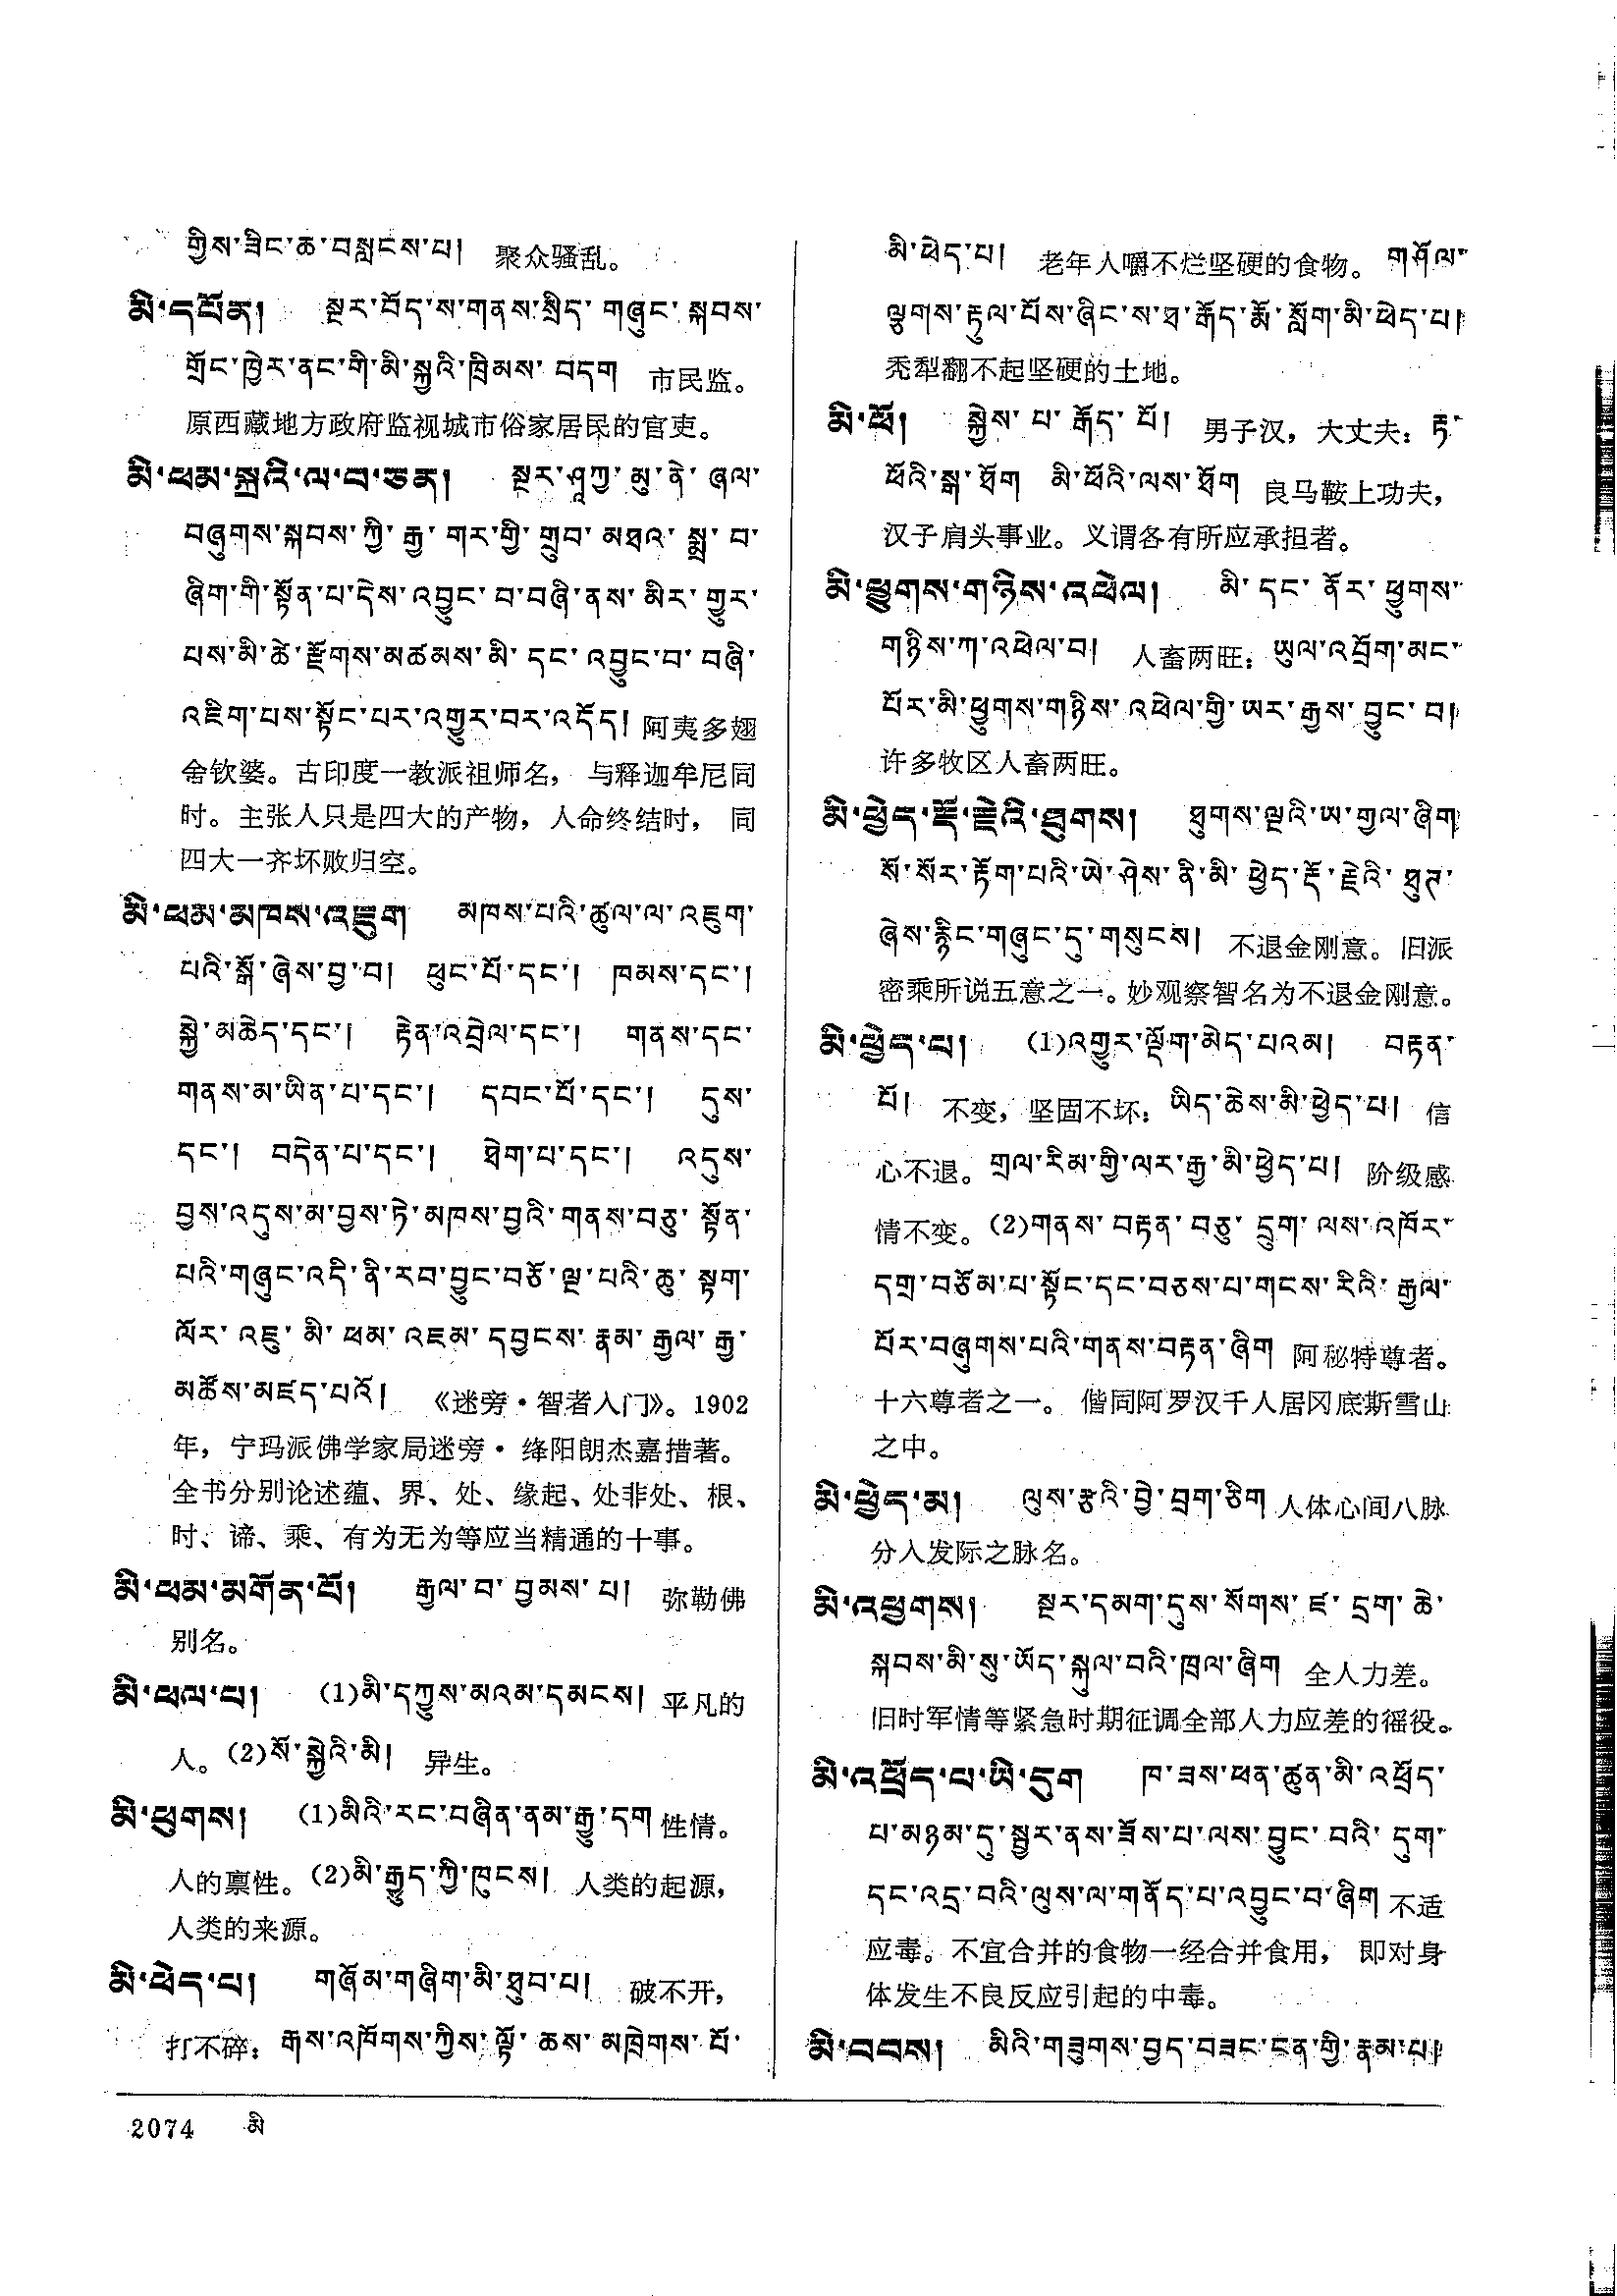 གྱིས་ཟིང་ཆ་བསླངས་པ། 聚众骚乱。
མི་དཔོན། སྔར་བོད་ས་གནས་སྲིད་གཞུང་སྐབས་
གྲོང་ཁྱེར་ནང་གི་མི་སྐྱའི་ཁྲིམས་བདག 市民监。
原西藏地方政府监视城市俗家居民的官吏。
མི་ཕམ་སྐྲའི་ལ་བ་ཅན། སྔར་ཤཱཀྱ་མུ་ནེ་ཞལ་
བཞུགས་སྐབས་ཀྱི་རྒྱ་གར་གྱི་གྲུབ་མཐའ་སྨྲ་བ་
ཞིག་གི་སྟོན་པ་དེས་འབྱུང་བ་བཞི་ནས་མིར་གྱུར་
པས་མི་ཚེ་རྫོགས་མཚམས་མི་དང་འབྱུང་བ་བཞི་
འཇིག་པས་སྟོང་པར་འགྱུར་བར་འདོད། 阿夷多翅
舍钦婆。古印度一教派祖师名，与释迦牟尼同
时。主张人只是四大的产物，人命终结时，同
四大一齐坏败归空。
མི་ཕམ་མཁས་འཇུག མཁས་པའི་ཚུལ་ལ་འཇུག་
པའི་སྒོ་ཞེས་བྱ་བ། ཕུང་པོ་དང་། ཁམས་དང་།
སྐྱེ་མཆེད་དང་། རྟེན་འབྲེལ་དང་། གནས་དང་
གནས་མ་ཡིན་པ་དང་། དབང་པོ་དང་། དུས་
དང་། བདེན་པ་དང་། ཐེག་པ་དང་། འདུས་
བྱས་འདུས་མ་བྱས་ཏེ་མཁས་བྱའི་གནས་བཅུ་སྟོན་
པའི་གཞུང་འདི་ནི་རབ་བྱུང་བཅོ་ལྔ་པའི་ཆུ་སྟག་
ལོར་འཇུ་མི་ཕམ་འཇམ་དབྱངས་རྣམ་རྒྱལ་རྒྱ་
མཚོས་མཛད་པའོ། 《迷旁·智者入门》。1902
年，宁玛派佛学家局迷旁·绛阳朗杰嘉措著。
全书分别论述蕴、界、处、缘起、处非处、根、
时、谛、乘、有为无为等应当精通的十事。
མི་ཕམ་མགོན་པོ། རྒྱལ་བ་བྱམས་པ། 弥勒佛
别名。
མི་ཕལ་པ། (1)མི་དཀྱུས་མའམ་དམངས། 平凡的
人。(2)སོ་སྐྱེའི་མི། 异生。
མི་ཕུགས། (1)མིའི་རང་བཞིན་ནམ་རྒྱུ་དག 性情。
人的禀性。(2)མི་རྒྱུད་ཀྱི་ཁུངས། 人类的起源，
人类的来源。
མི་ཕེད་པ། གཞོམ་གཞིག་མི་ཐུབ་པ། 破不开，
打不碎：རྒས་འཁོགས་ཀྱིས་ལྟོ་ཆས་མཁྲེགས་པོ་
མི་ཕེད་པ། 老年人嚼不烂坚硬的食物。གཤོལ་
ལྕགས་རྟུལ་པོས་ཞིང་ས་ཐ་རྒོད་རྨོ་སློག་མི་ཕེད་པ།
秃犁翻不起坚硬的土地。
མི་ཕོ། སྐྱེས་པ་རྒོད་པོ། 男子汉，大丈夫：རྟ་
ཕོའི་སྒ་ཐོག མི་ཕོའི་ལས་ཐོག 良马鞍上功夫，
汉子肩头事业。义谓各有所应承担者。
མི་ཕྱུགས་གཉིས་འཕེལ། མི་དང་ནོར་ཕྱུགས་
གཉིས་ཀ་འཕེལ་བ། 人畜两旺：ཡུལ་འབྲོག་མང་
པོར་མི་ཕྱུགས་གཉིས་འཕེལ་གྱི་ཡར་རྒྱས་བྱུང་བ།
许多牧区人畜两旺。
མི་ཕྱེད་རྡོ་རྗེའི་ཐུགས། ཐུགས་ལྔའི་ཡ་གྱལ་ཞིག
སོ་སོར་རྟོག་པའི་ཡེ་ཤེས་ནི་མི་ཕྱེད་རྡོ་རྗེའི་ཐུཊ་
ཞེས་རྙིང་གཞུང་དུ་གསུངས། 不退金刚意。旧派
密乘所说五意之一。妙观察智名为不退金刚意。
མི་ཕྱེད་པ། (1)འགྱུར་ལྡོག་མེད་པའམ། བརྟན་
པོ། 不变，坚固不坏：ཡིད་ཆེས་མི་ཕྱེད་པ། 信
心不退。གྲལ་རིམ་གྱི་ལར་རྒྱ་མི་ཕྱེད་པ། 阶级感
情不变。(2)གནས་བརྟན་བཅུ་དྲུག་ལས་འཁོར་
དགྲ་བཅོམ་པ་སྟོང་དང་བཅས་པ་གངས་རིའི་རྒྱལ་
པོར་བཞུགས་པའི་གནས་བརྟན་ཞིག 阿秘特尊者。
十六尊者之一。偕同阿罗汉千人居冈底斯雪山
之中。
མི་ཕྱེད་མ། ལུས་རྩའི་བྱེ་བྲག་ཅིག 人体心间八脉
分入发际之脉名。
མི་འཕྱགས། སྔར་དམག་དུས་སོགས་ཛ་དྲག་ཆེ་
སྐབས་མི་སུ་ཡོད་སྐུལ་བའི་ཁྲལ་ཞིག 全人力差。
旧时军情等紧急时期征调全部人力应差的徭役。
མི་འཕྲོད་པ་ཡི་དུག ཁ་ཟས་ཕན་ཚུན་མི་འཕྲོད་
པ་མཉམ་དུ་སྦྱར་ནས་ཟོས་པ་ལས་བྱུང་བའི་དུག་
དང་འདྲ་བའི་ལུས་ལ་གནོད་པ་འབྱུང་བ་ཞིག 不适
应毒。不宜合并的食物一经合并食用，即对身
体发生不良反应引起的中毒。
མི་བབས། མིའི་གཟུགས་བྱད་བཟང་ངན་གྱི་རྣམ་པ།
2074 མི